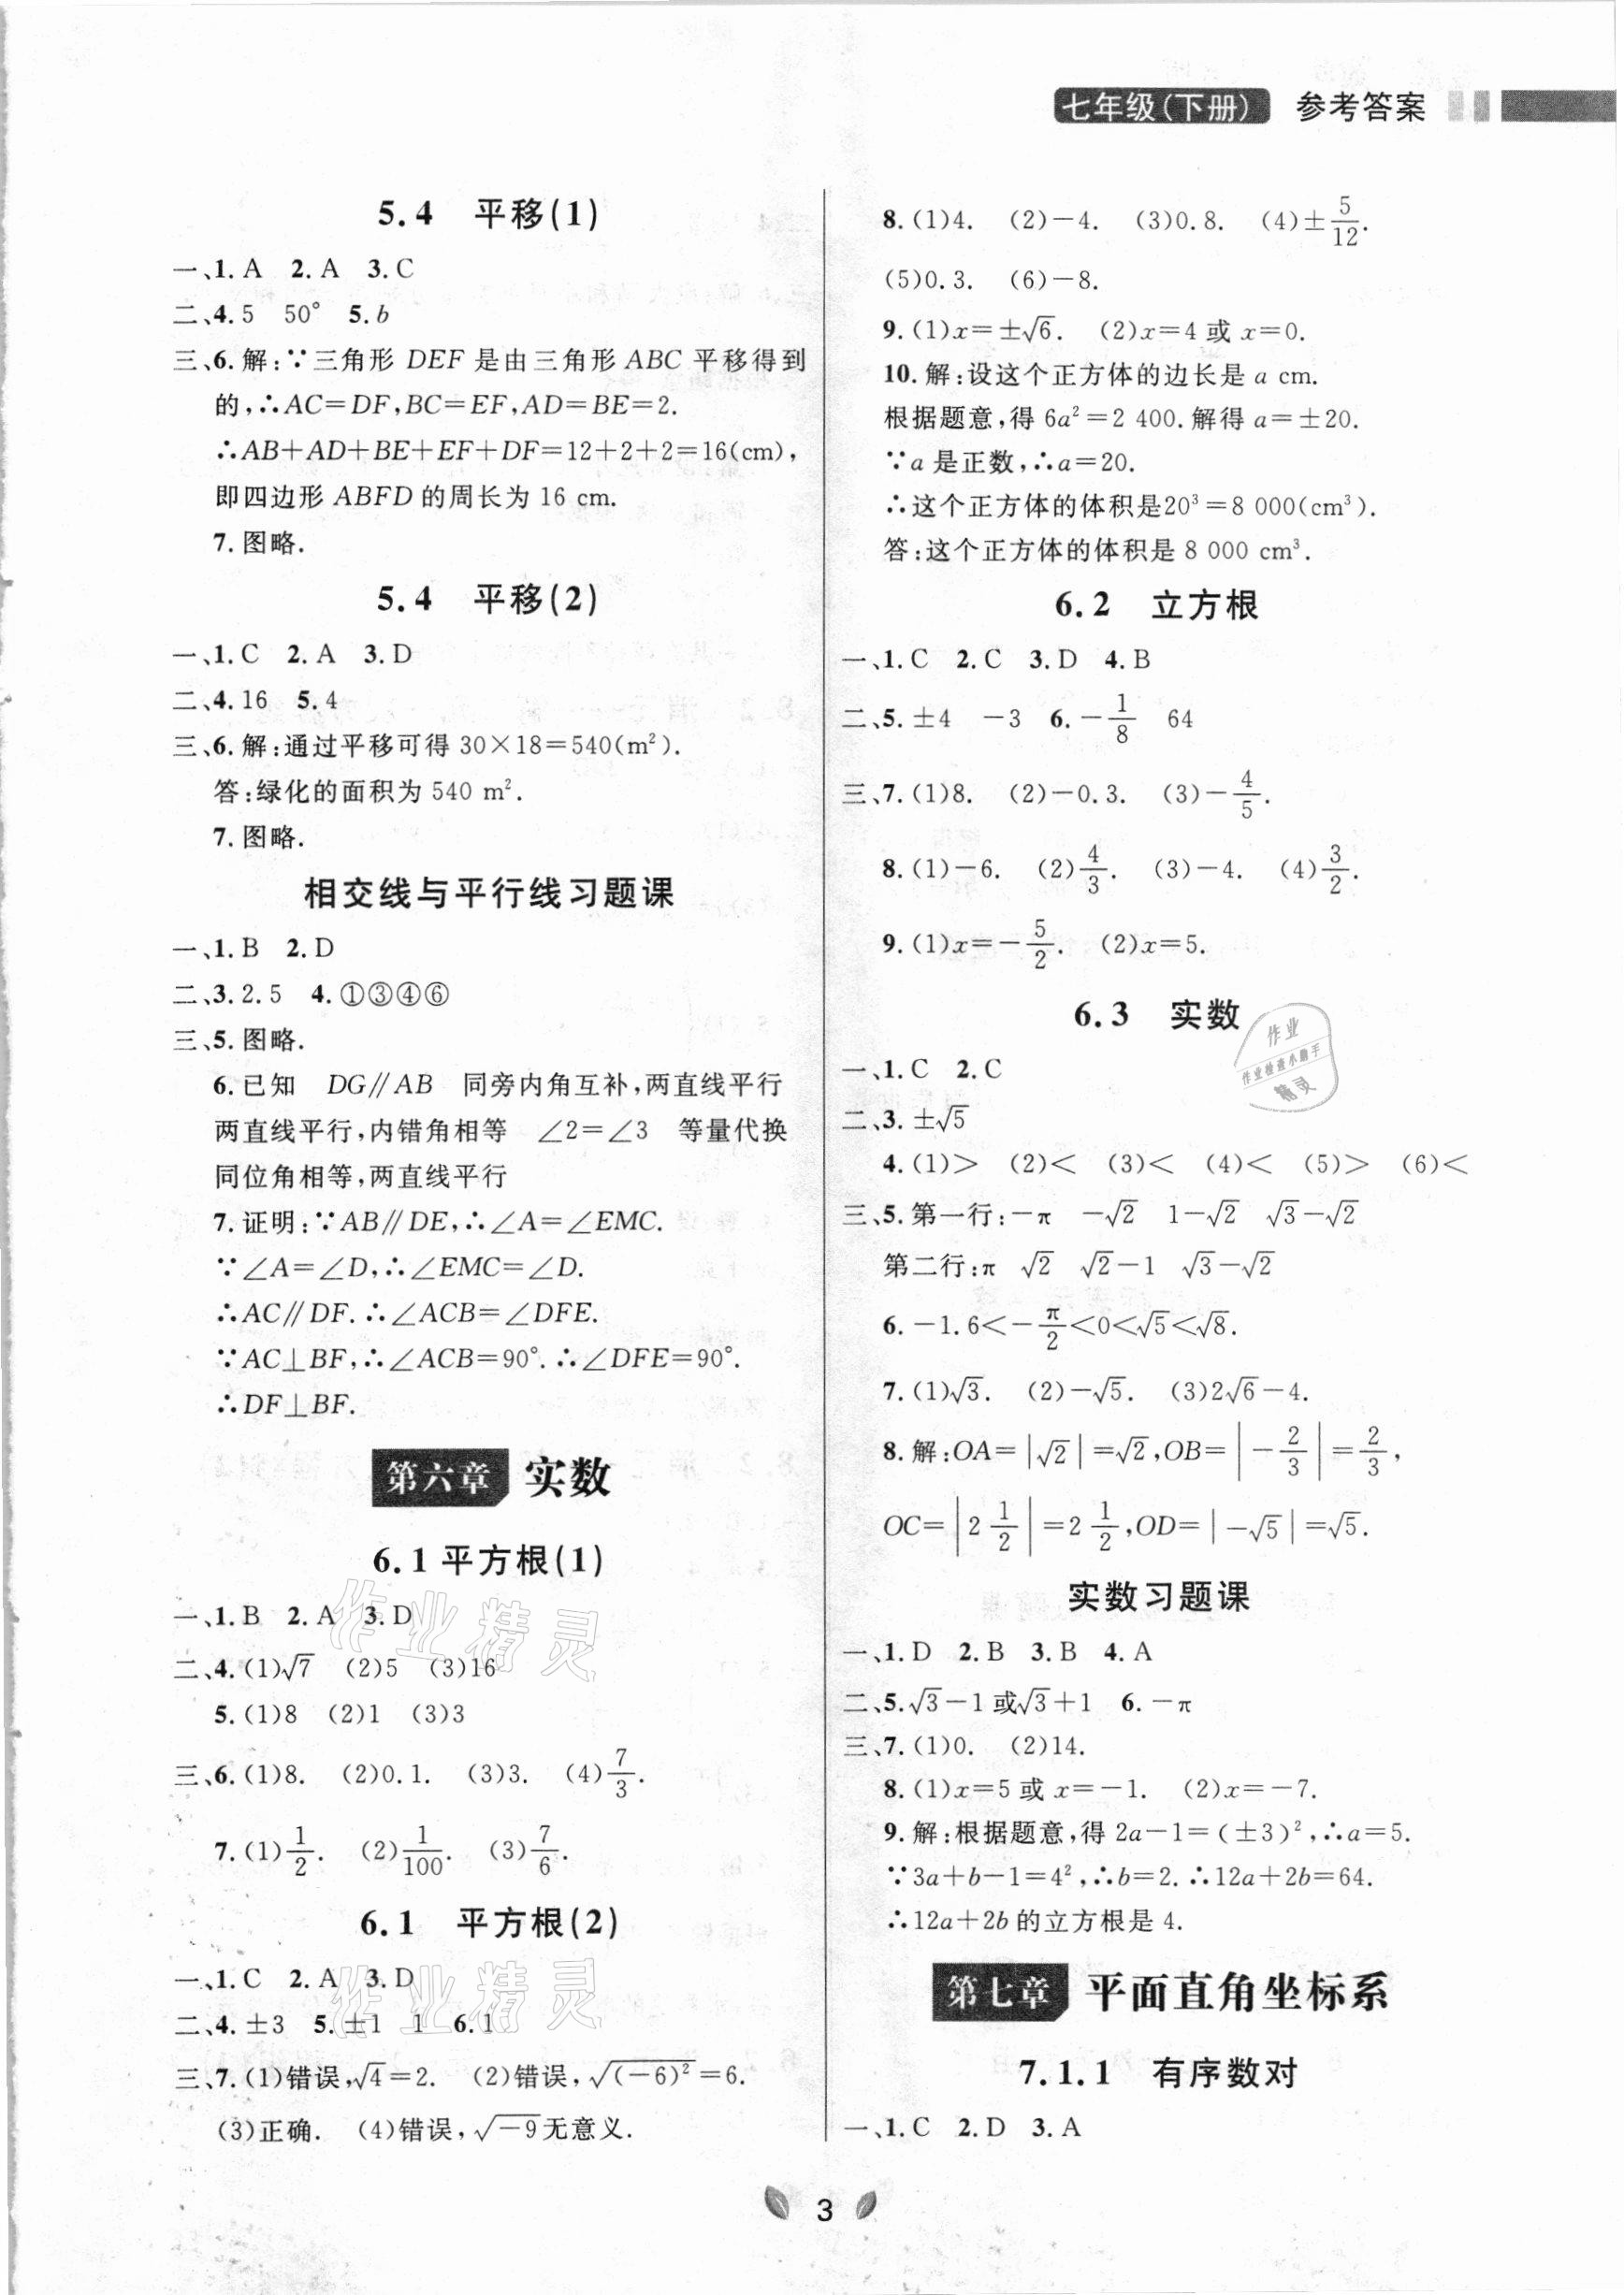 七年级(下册) 参考答案
5.4 平移(1)
一、1. A 2. A 3. C
二、4. 5 50° 5. b
三、6. 解:∵三角形 DEF 是由三角形 ABC 平移得到
的,∴AC=DF,BC=EF,AD=BE=2.
∴AB+AD+BE+EF+DF=12+2+2=16(cm),
即四边形 ABFD 的周长为 16 cm.
7. 图略.
5.4 平移(2)
一、1. C 2. A 3. D
二、4. 16 5. 4
三、6. 解:通过平移可得 30×18=540(m²).
答:绿化的面积为 540 m².
7. 图略.
相交线与平行线习题课
一、1. B 2. D
二、3. 2.5 4. ①③④⑥
三、5. 图略.
6. 已知 DG∥AB 同旁内角互补,两直线平行
两直线平行,内错角相等 ∠2=∠3 等量代换
同位角相等,两直线平行
7. 证明:∵AB∥DE,∴∠A=∠EMC.
∵∠A=∠D,∴∠EMC=∠D.
∴AC∥DF.∴∠ACB=∠DFE.
∵AC⊥BF,∴∠ACB=90°.∴∠DFE=90°.
∴DF⊥BF.
第六章 实数
6.1 平方根(1)
一、1. B 2. A 3. D
二、4. (1)√7 (2)5 (3)16
5. (1)8 (2)1 (3)3
三、6. (1)8. (2)0.1. (3)3. (4)7/3.
7. (1)1/2. (2)1/100. (3)7/6.
6.1 平方根(2)
一、1. C 2. A 3. D
二、4. ±3 5. ±1 1 6. 1
三、7. (1)错误,√4=2. (2)错误,√(-6)²=6.
(3)正确. (4)错误,√-9无意义.
8. (1)4. (2)-4. (3)0.8. (4)±5/12.
(5)0.3. (6)-8.
9. (1)x=±√6. (2)x=4 或 x=0.
10. 解:设这个正方体的边长是 a cm.
根据题意,得 6a²=2 400.解得 a=±20.
∵a 是正数,∴a=20.
∴这个正方体的体积是20³=8 000(cm³).
答:这个正方体的体积是 8 000 cm³.
6.2 立方根
一、1. C 2. C 3. D 4. B
二、5. ±4 -3 6. -1/8 64
三、7. (1)8. (2)-0.3. (3)-4/5.
8. (1)-6. (2)4/3. (3)-4. (4)3/2.
9. (1)x=-5/2. (2)x=5.
6.3 实数
作业
作业检查小助手
精灵
一、1. C 2. C
二、3. ±√5
4. (1)> (2)< (3)< (4)< (5)> (6)<
三、5. 第一行:-π -√2 1-√2 √3-√2
第二行:π √2 √2-1 √3-√2
6. -1.6<-π/2<0<√5<√8.
7. (1)√3. (2)-√5. (3)2√6-4.
8. 解:OA=|√2|=√2,OB=|-2/3|=2/3,
OC=|2 1/2|=2 1/2,OD=|-√5|=√5.
实数习题课
一、1. D 2. B 3. B 4. A
二、5. √3-1 或√3+1 6. -π
三、7. (1)0. (2)14.
8. (1)x=5 或 x=-1. (2)x=-7.
9. 解:根据题意,得 2a-1=(±3)²,∴a=5.
∵3a+b-1=4²,∴b=2.∴12a+2b=64.
∴12a+2b 的立方根是 4.
第七章 平面直角坐标系
7.1.1 有序数对
一、1. C 2. D 3. A
作业精灵
作业精灵
3